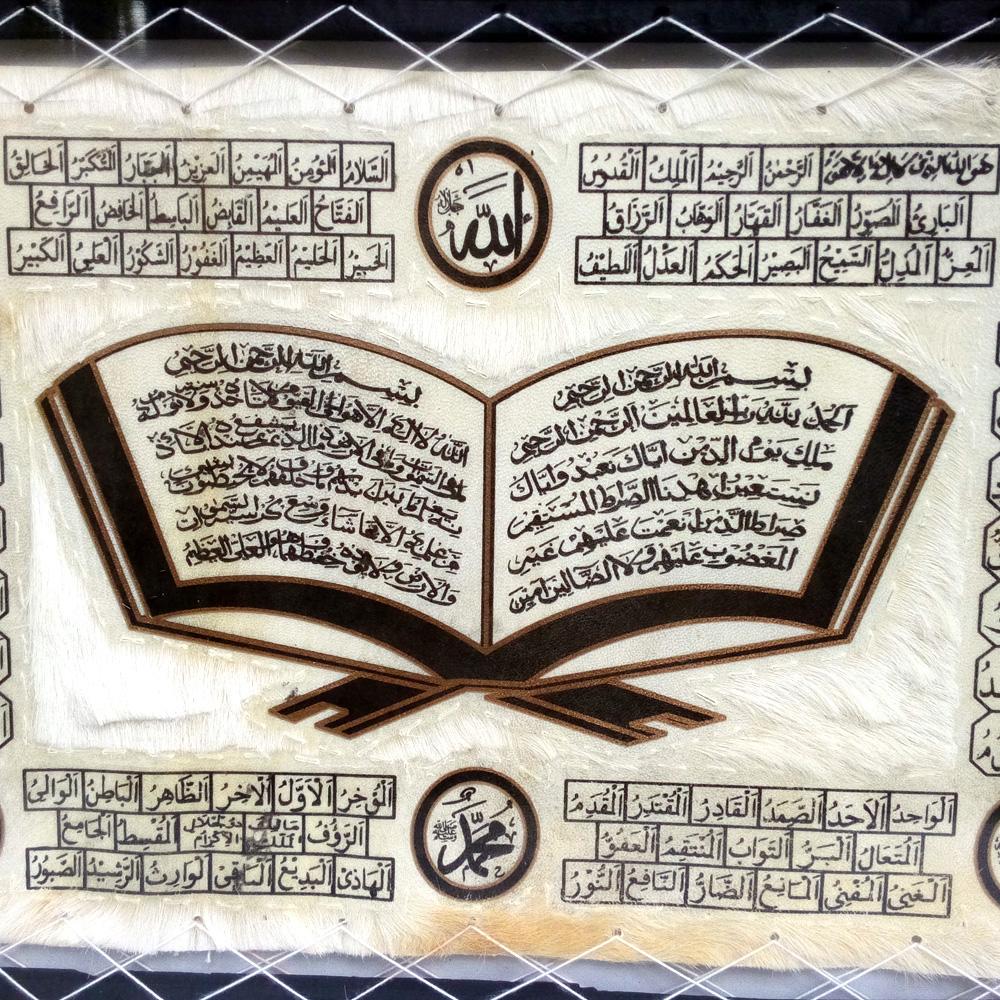 هو الله الذي لا اله الا هو الرَّحْمٰنُ الرَّحِيْمُ اَلْمَلِكُ اَلْقُدُّوسُ
اَلْبَارِئُ اَلْمُصَوِّرُ اَلْغَفَّارُ اَلْقَهَّارُ اَلْوَهَّابُ اَلرَّزَّاقُ
اَلْمُعِزُّ اَلْمُذِلُّ السَّمِيْعُ الْبَصِيْرُ اَلْحَكَمُ اَلْعَدْلُ اَللَّطِيْفُ
الله
جل جلاله
اَلسَّلَامُ اَلْمُؤْمِنُ اَلْمُهَيْمِنُ اَلْعَزِيْزُ اَلْجَبَّارُ اَلْمُتَكَبِّرُ اَلْخَالِقُ
اَلْفَتَّاحُ اَلْعَلِيْمُ اَلْقَابِضُ اَلْبَاسِطُ اَلْخَافِضُ اَلرَّافِعُ
اَلْخَبِيْرُ اَلْحَلِيْمُ اَلْعَظِيْمُ اَلْغَفُوْرُ اَلشَّكُوْرُ اَلْعَلِيُّ اَلْكَبِيْرُ
بسم الله الرحمن الرحيم
الحمد لله رب العالمين الرحمن الرحيم
ملك يوم الدين اياك نعبد واياك
نستعين اهدنا الصراط المستقيم
صراط الذين انعمت عليهم غير
المغضوب عليهم ولا الضالين امين
بسم الله الرحمن الرحيم
الله لا اله الا هو الحي القيوم لا تأخذه سنة ولا نوم له
ما في السموات وما في الارض من ذا الذي يشفع عنده الا باذنه
يعلم ما بين ايديهم وما خلفهم ولا يحيطون بشيء
من علمه الا بما شاء وسع كرسيه السموات
والارض ولا يؤده حفظهما وهو العلي العظيم
اَلْوَاحِدُ اَلْاَحَدُ اَلصَّمَدُ اَلْقَادِرُ اَلْمُقْتَدِرُ اَلْمُقَدِّمُ
اَلْمُتَعَالِ اَلْبَرُّ اَلتَّوَابُ اَلْمُنْتَقِمُ اَلْعَفُوُّ
اَلْغَنِيُّ اَلْمُغْنِيُ اَلْمَانِعُ اَلضَّارُّ اَلنَّافِعُ اَلنُّوْرُ
محمد
اَلْمُؤَخِّرُ اَلْاَوَّلُ اَلْاٰخِرُ اَلظَّاهِرُ اَلْبَاطِنُ اَلْوَالِيُ
اَلرَّؤُفُ مالك الملك ذو الجلال والاكرام اَلْمُقْسِطُ اَلْجَامِعُ
اَلْهَادِيُ اَلْبَدِيْعُ اَلْبَاقِيُ اَلْوَارِثُ اَلرَّشِيْدُ اَلصَّبُوْرُ